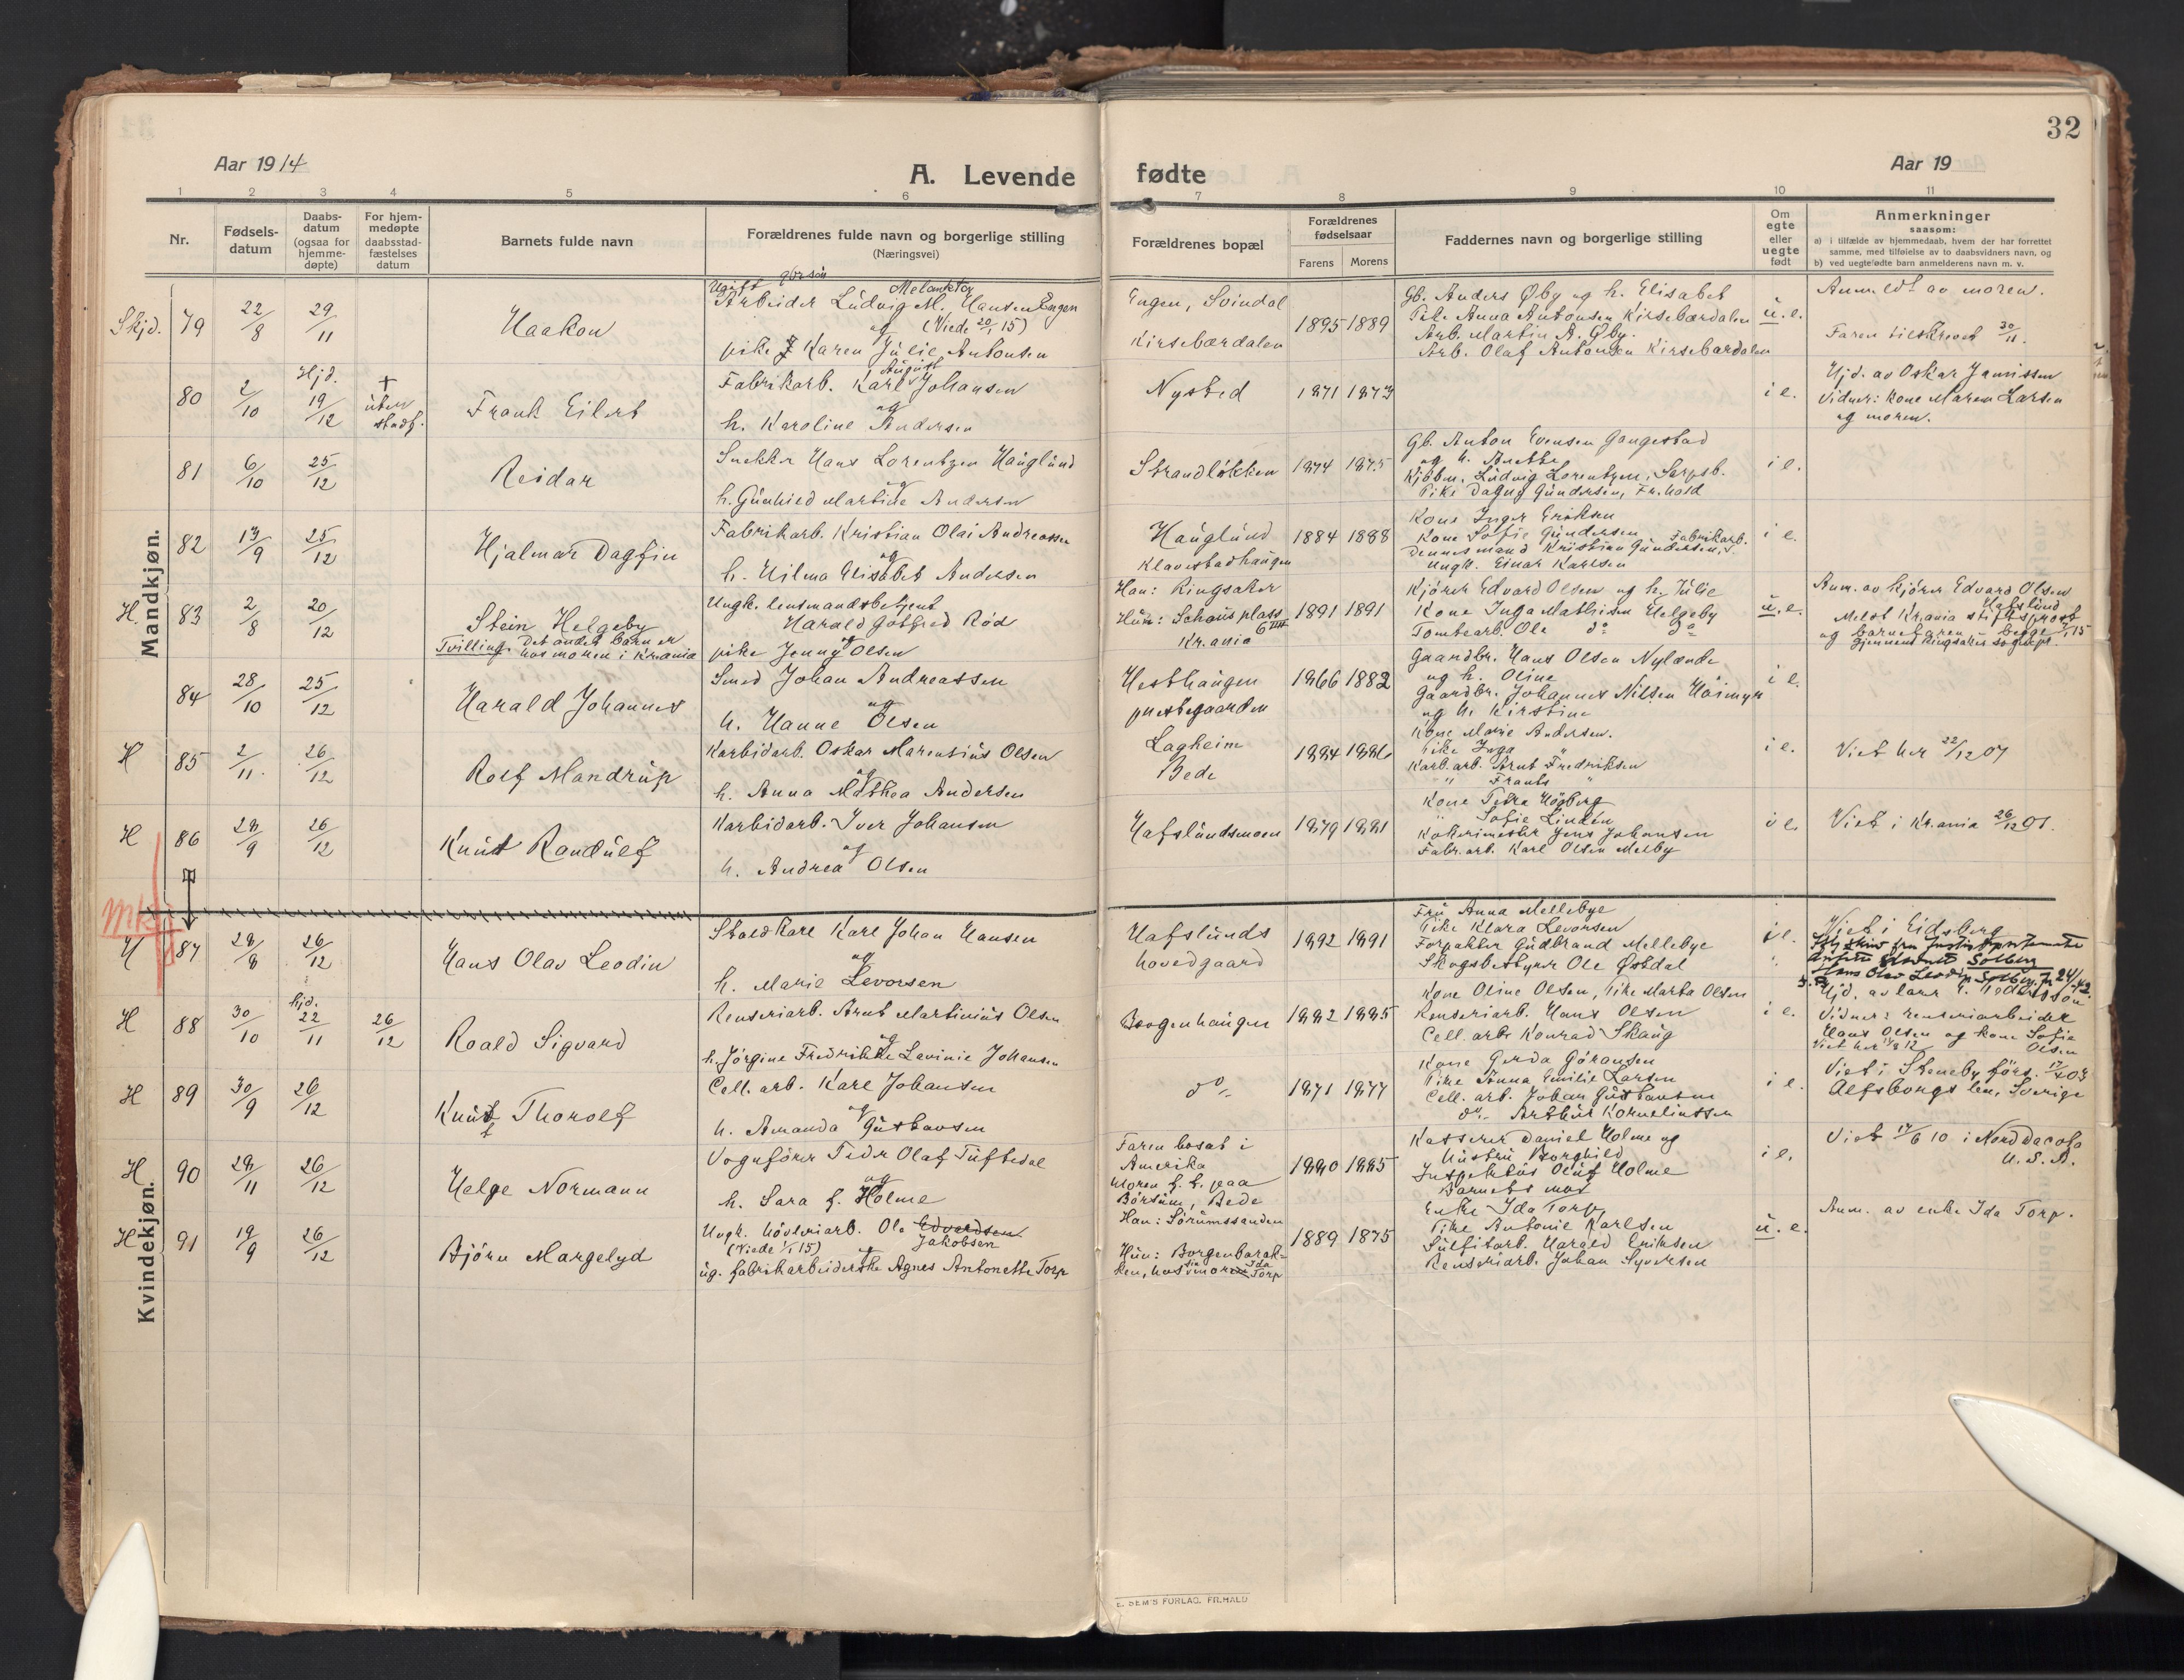 32
Aar 1914
A. Levende fødte
Aar 19
1 2 3 4 5 6 7 8 9 10 11
Nr.
Fødsels-
datum
Daabs-
datum
(ogsaa for
hjemme-
døpte)
For hjem-
medøpte
daabsstad-
fæstelses
datum
Barnets fulde navn
Forældrenes fulde navn og borgerlige stilling
(Næringsvei)
Forældrenes bopæl
Forældrenes
fødselsaar
Farens Morens
Faddernes navn og borgerlige stilling
Om
egte
eller
uegte
født
Anmerkninger
saasom:
a) i tilfælde av hjemmedaab, hvem der har forrettet
samme, med tilføielse av to daabsvidners navn, og
b) ved uegtefødte barn anmelderens navn m. v.
Mandkjøn.
Skjd. 79 22/8 29/11 Haakon
Ugift gbrsøn
Melankton
Arbeider Ludvig M. Hansen Engen
og (Viede 20/1 15)
pike Karen Julie Antonsen
Engen, Svindal
Kirsebærdalen
1895 1889
Gb. Anders Øby og h. Elisabet
Pike Anna Antonsen Kirsebærdalen
Arb. Martin A. Øby.
Arb. Olaf Antonsen Kirsebærdalen
u. e.
Anmeldt av moren.
Faren tilskrevet 30/11.
80 2/10 Hjd. 19/12 + uten stadf. Frank Eilert
August
Fabrikarb. Karl Johansen
og
h. Karoline Andersen
Nysted
1871 1873
i e.
Hjd. av Oskar Jamissen
Vidner: Kone Maren Larsen
og moren.
81 6/10 25/12 Reidar
Snekker Hans Lorentzen Hauglund
og
h. Gunhild Martine Andersen
Strandløkken
1874 1875
Gb. Anton Evensen Gangestad
og h. Anette
Kjøbm. Ludvig Lorentzen, Sarpsb.
Pike Dagny Gundersen, Fr.hald
i e.
82 13/9 25/12 Hjalmar Dagfin
Fabrikarb. Kristian Olai Andreassen
og
h. Hilma Elisabet Andersen
Hauglund
Klavestadhaugen
1884 1888
Kone Inger Eriksen
Kone Sofie Gundersen Fabrikarb.
Dennes mand Kristian Gundersen,
Ungk. Einar Karlsen
i e.
H. 83 2/8 20/12 Stein Helgeby
Tvilling. Det andet barn er
hos moren i Kr.ania
Ungk. lensmandsbetjent
Harald Gotfred Rød
og
pike Jenny Olsen
Han: Ringsaker
Hun: Schous plass
6 IIII
Kr.ania
1891 1891
Kjører Edvard Olsen og h. Julie
Kone Inga Mathisen Helgeby
Tomtearb. Ole do do
u. e.
Anm. av kjører Edvard Olsen
Hafslund
Meldt Kr.ania stiftsprost
og barnefaren begge 7/1 15
gjennem Ringsaker sognepr.
84 28/10 25/12 Harald Johannes
Smed Johan Andreassen
og
h. Hanne Olsen
Hesthaugen
prestegaarden
1866 1882
Gaardbr. Hans Olsen Nylænde
og h. Oline
Gaardbr. Johannes Nilsen Høimyr
og h. Kirstine
i e.
H 85 2/11. 26/12 Rolf Mandrup
Karbidarb. Oskar Marensius Olsen
og
h. Anna Mathea Andersen
Lagheim
Bede
1884 1886
Kone Marie Andersen.
Pike Inga "
Karb.arb. Arnt Fredriksen
" Frants "
i e.
Viet her 22/12 07
H 86 29/9 26/12 Knut Randulf
Karbidarb. Iver Johansen
og
h. Andrea Olsen
Hafslundsmoen
1879 1881
Kone Petra Høiberg
" Sofie Lindén
Kokerimester Jens Johansen
Fabr.arb. Karl Olsen Melby
i e.
Viet i Kr.ania 26/12 01.
Mkj
H 87 28/8 26/12 Hans Olav Leodin
Staldkarl Karl Johan Hansen
og
h. Marie Levorsen
Hafslunds
hovedgaard
1892 1891
Fru Anna Mellebye
Pike Klara Levorsen
Forpakter Gudbrand Mellebye
Skogsbestyrer Ole Østdal
i e.
Viet i Eidsberg
Solberg
Hans Olav Leodin Solberg.
H 88 30/10 hjd. 22/11 26/12 Roald Sigvard
Renseriarb. Arnt Martinius Olsen
og
h. Jørgine Fredrikke Lavinie Johansen
Borgenhaugen
1882 1885
Kone Oline Olsen, Pike Marta Olsen
Renseriarb. Hans Olsen
Cell. arb. Konrad Skaug
i e.
Vidner: renseriarbeider
Hans Olsen og kone Sofie
Olsen
H 89 30/9 26/12 Knut Thorolf
Cell. arb. Karl Johansen
og
h. Amanda Gustavsen
do
1871 1877
Kone Gerda Gøransen
Pike Anna Emilie Larsen
Cell. arb. Johan Gustavsen
do Arthur Korneliussen
i e.
Viet i Steneby førs. 17/7 03
Alfsborgs len, Sverige
Kvindekjøn.
H 90 29/11 26/12 Helge Normann
Vognfører Peder Olaf Tuftedal
og
h. Sara f. Holme
Faren bosat i
Amerika
Moren f. t. paa
Børsum, Bede
1880 1885
Kasserer Daniel Holme og
Hustru Borghild
Inspektør Oluf Holme
Barnets mor
i e.
Viet 14/6 10 i Nord Dacota
U. S. A.
H 91 19/9 26/12 Bjørn Margelyd
Ungk. høvleriarb. Ole Edvardsen
(Viede 1/1 15) Jakobsen
ug. fabrikarbeiderske Agnes Antonette Torp
Han: Sørumssanden
Hun: Borgenbarak-
ken, hos sin mor Ida Torp
1889 1875
Enke Ida Torp
Pike Antonie Karlsen
Sulfitarb. Harald Eriksen
Renseriarb. Johan Syversen
u. e.
Anm. av enke Ida Torp.
E. SEM'S FORLAG, FR.HALD